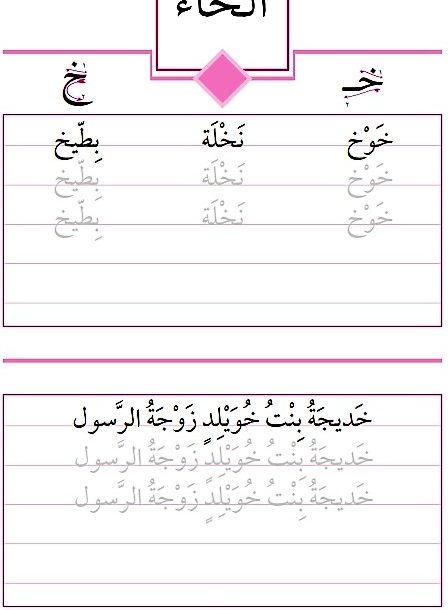 الخاء
خـ خ
خَوْخ نَخْلَة بِطّيخ
خَوْخ نَخْلَة بِطّيخ
خَوْخ نَخْلَة بِطّيخ
خَديجَةُ بِنْتُ خُوَيْلِدٍ زَوْجَةُ الرَّسول
خَديجَةُ بِنْتُ خُوَيْلِدٍ زَوْجَةُ الرَّسول
خَديجَةُ بِنْتُ خُوَيْلِدٍ زَوْجَةُ الرَّسول